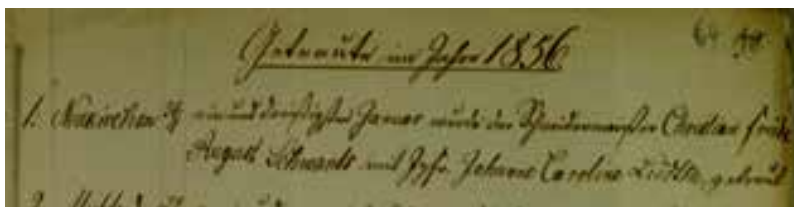 Getraute im Jahre 1856
1. Neukirchen ein und dreißigster Januar wurde der Schneidermeister Christian Fried.
August Schwartz mit Jgfr. Johanne Caroline Lüdtke, getraut
2.